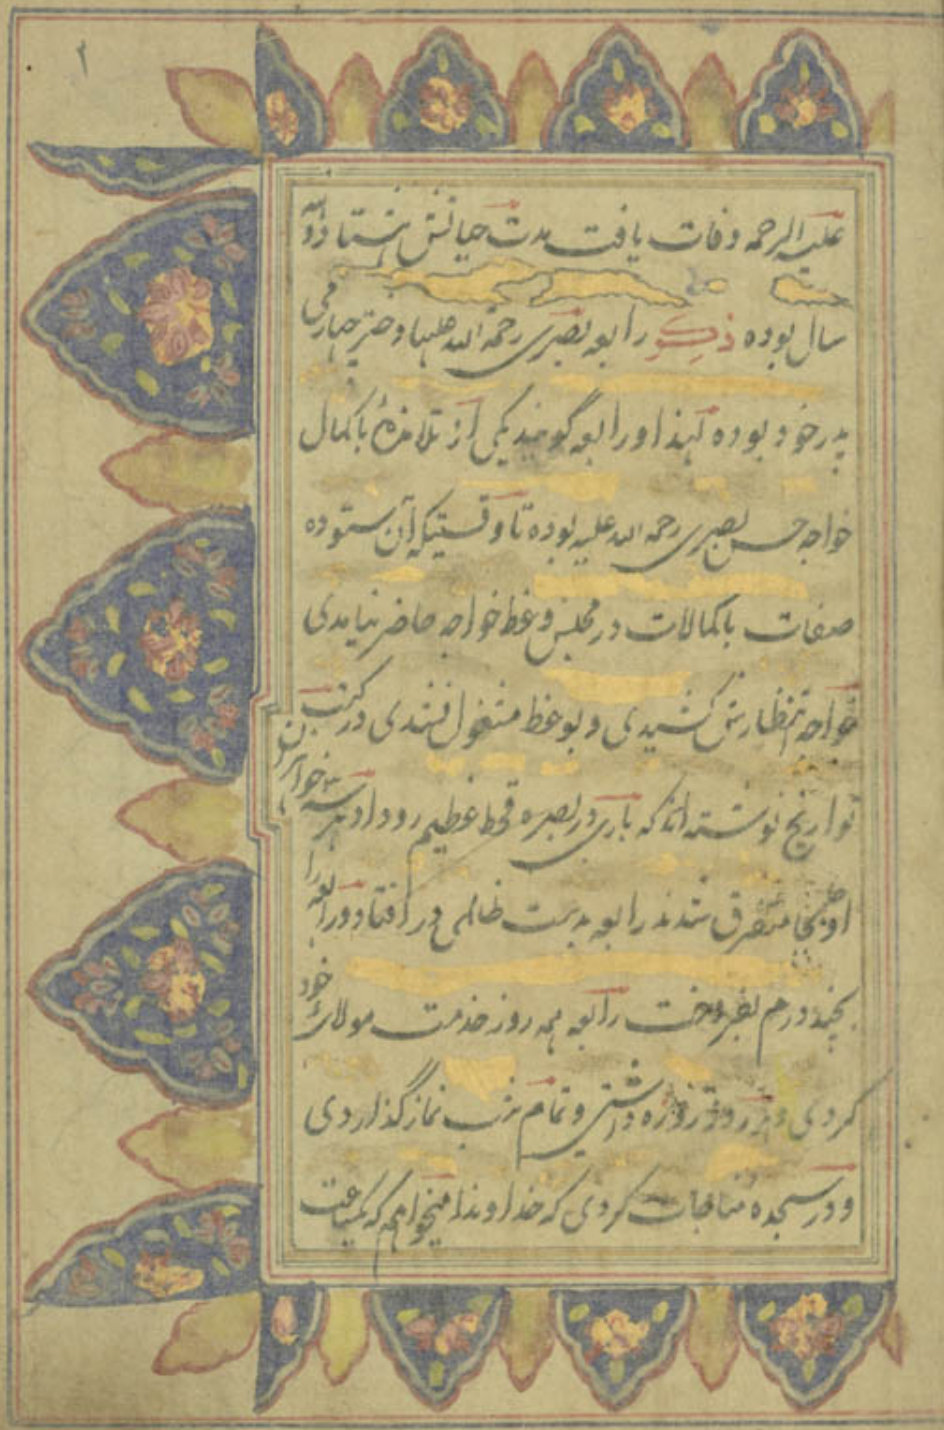 ۲
علیه الرحمه وفات یافت مدت حیاتش هشتاد و نه
سال بوده ذکر رابعه بصری رحمة الله علیها دختر چهارمی
پدر خود بوده لهذا او را رابعه گویند یکی از تلامذهٔ باکمال
خواجه حسن بصری رحمه الله علیه بوده تا وقتیکه آن ستوده
صفات باکمالات در مجلس وعظ خواجه حاضر نیامدی
خواجه انتظارش کشیدی و بوعظ مشغول نشدی در کتب
تواریخ نوشته‌اند که باری در بصره قحط عظیم رو داد هر سه خواهران
او متفرق شدند رابعه بدست ظالمی در افتاد و رابعه را
بچند درم بفروخت رابعه همه روز خدمت مولای خود
کردی و روزه داشتی و تمام شب نماز گذاردی
و در سجده مناجات کردی که خداوندا میخواهم که یکساعت